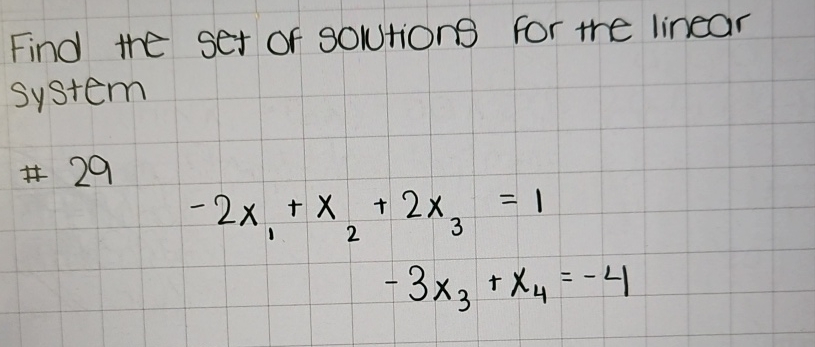 Find the set of solutions for the linear
system
# 29
-2x₁ + x₂ + 2x₃ = 1
-3x₃ + x₄ = -4